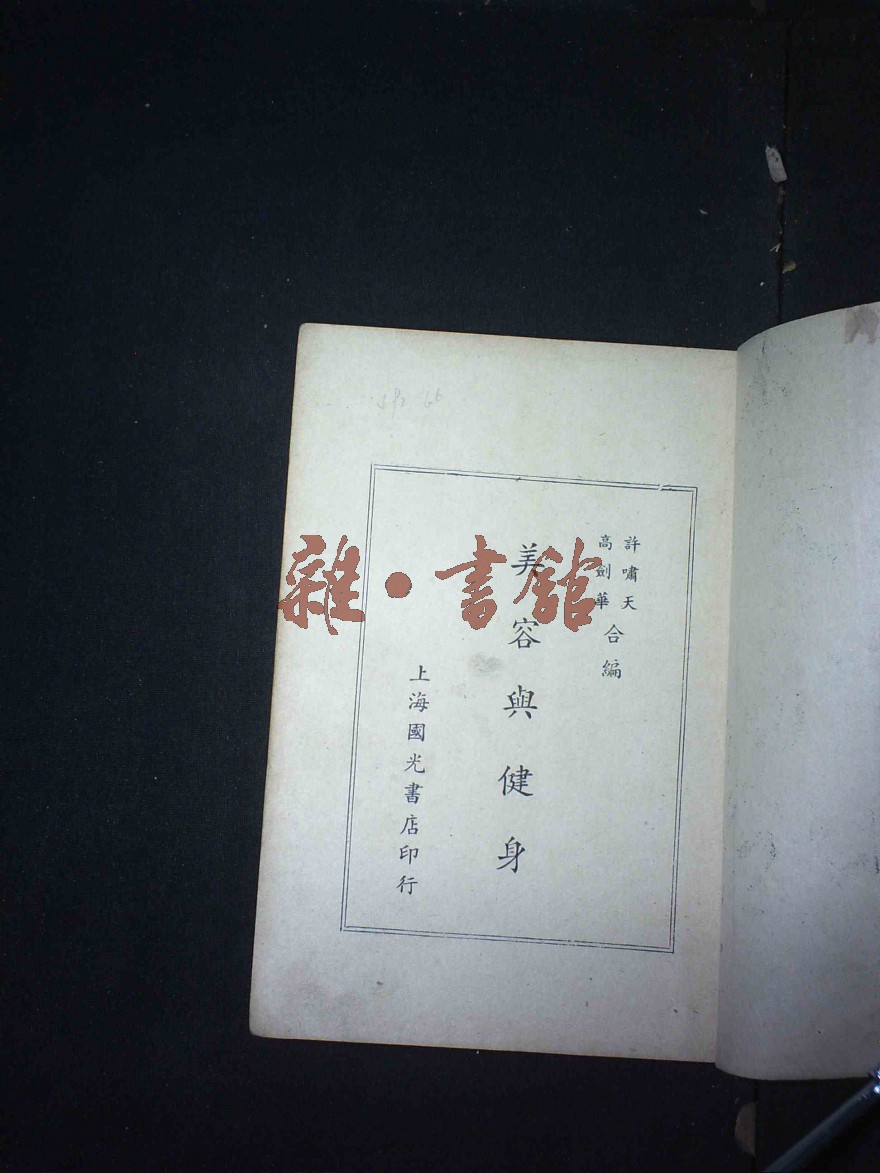 許嘯天
高劍華
合編
美容與健身
上海國光書店印行
雜·書館